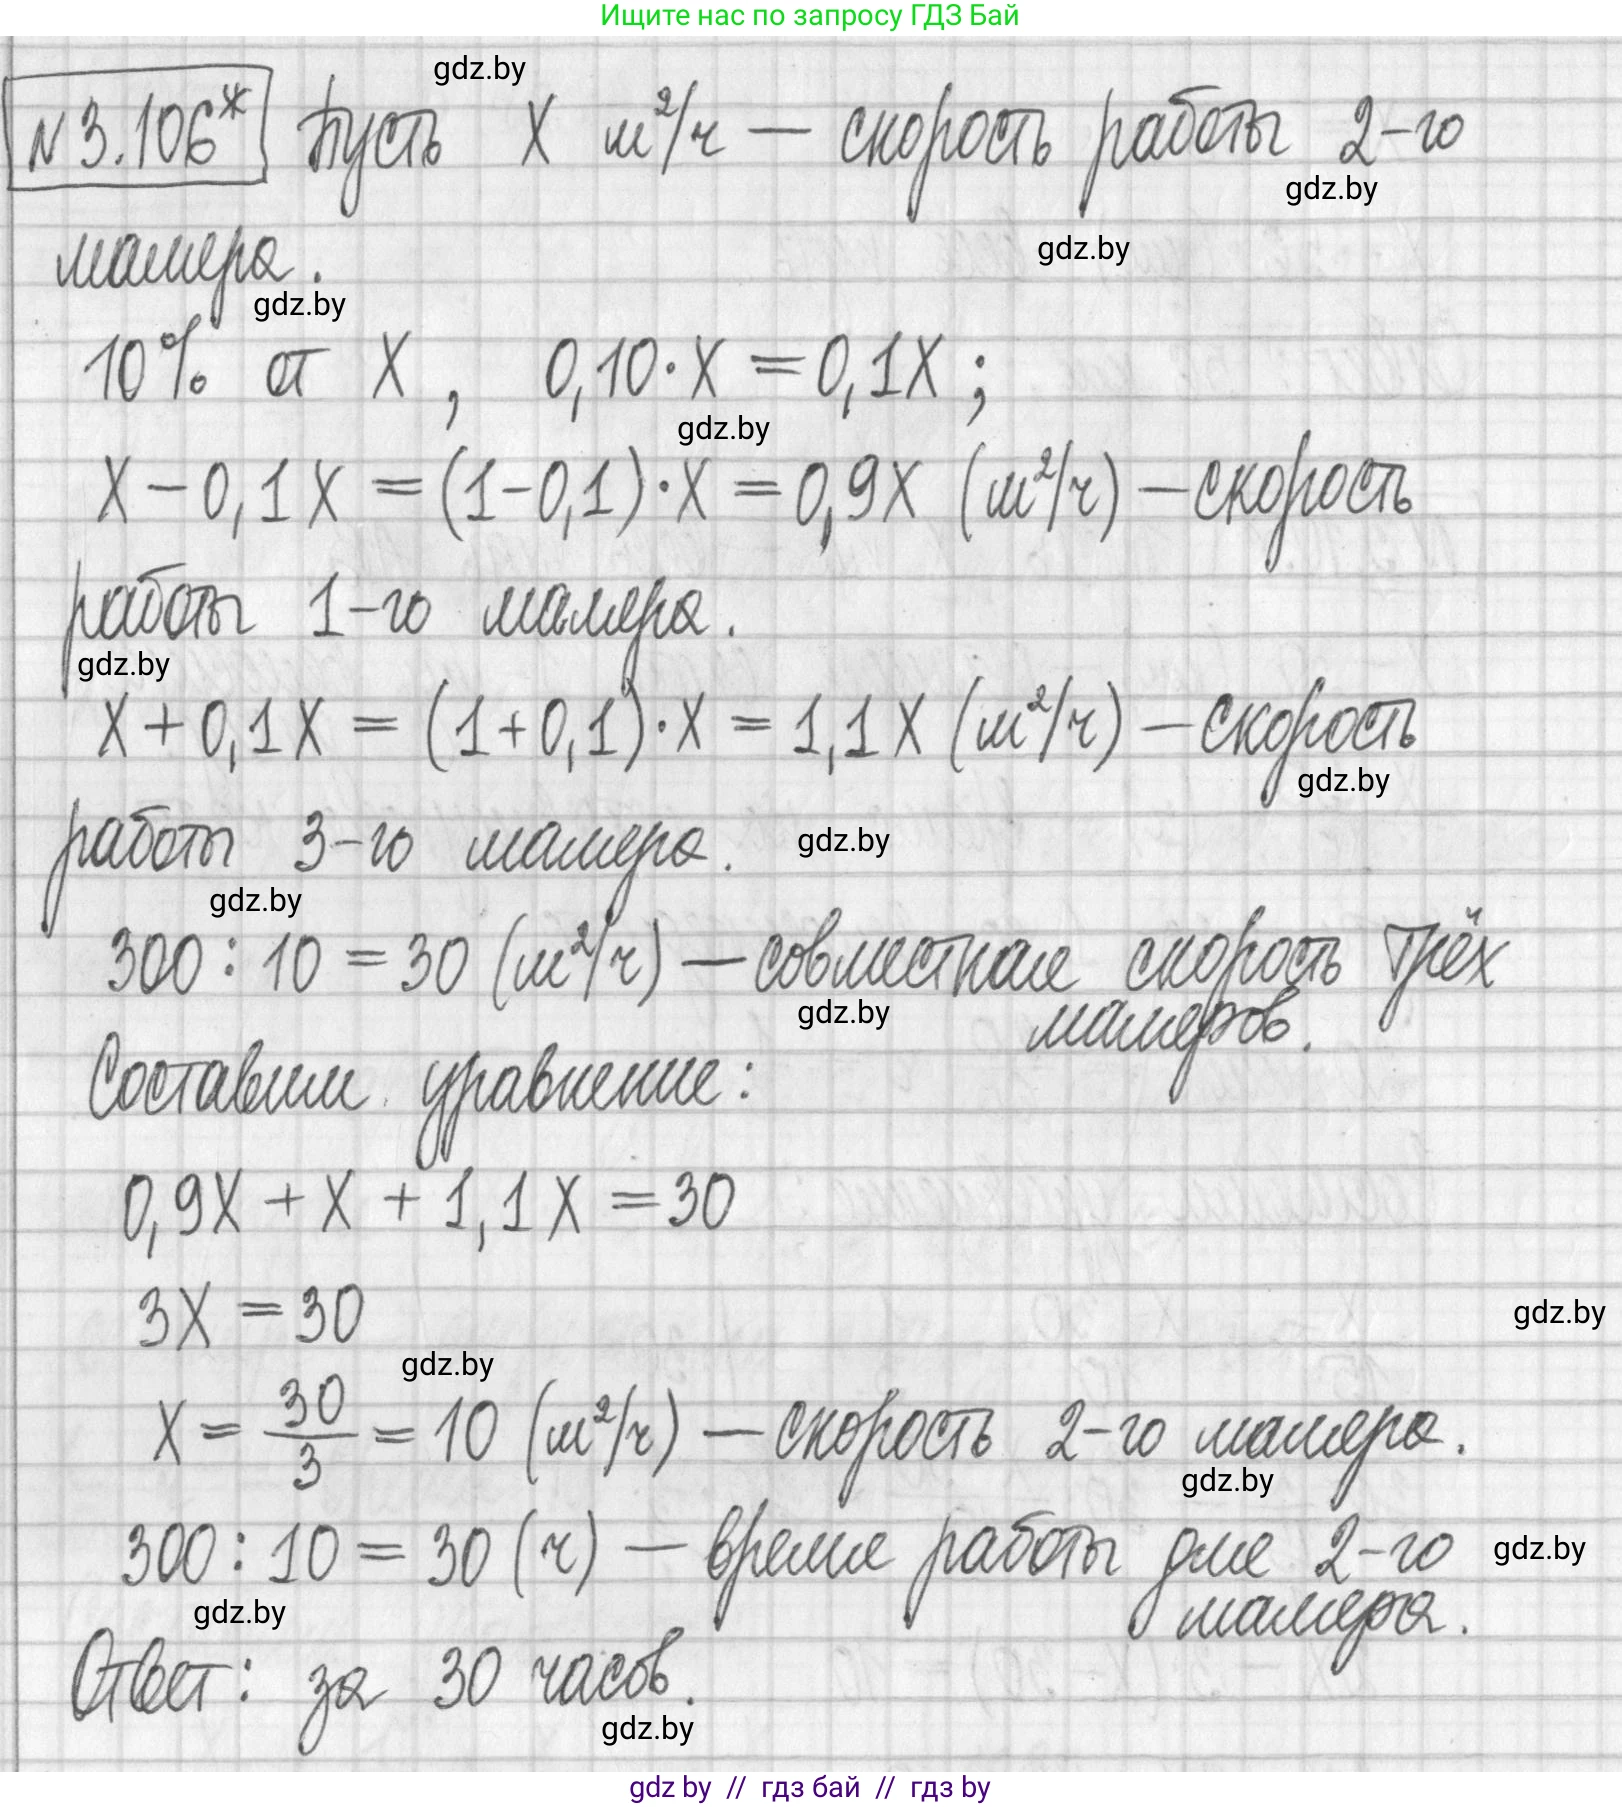 Ищите нас по запросу ГДЗ Бай
gdz.by
№3.106* Пусть X м²/ч — скорость работы 2-го
gdz.by
маляра.
gdz.by
gdz.by
10% от X, 0,10·X = 0,1X;
gdz.by
X - 0,1X = (1-0,1)·X = 0,9X (м²/ч) — скорость
работы 1-го маляра.
gdz.by
X + 0,1X = (1+0,1)·X = 1,1X (м²/ч) — скорость
gdz.by
работы 3-го маляра.
gdz.by
gdz.by
300 : 10 = 30 (м²/ч) — совместная скорость трёх
маляров.
gdz.by
Составим уравнение:
0,9X + X + 1,1X = 30
3X = 30
gdz.by
gdz.by
X = 30/3 = 10 (м²/ч) — скорость 2-го маляра.
gdz.by
300 : 10 = 30 (ч) — время работы для 2-го
gdz.by
маляра.
gdz.by
Ответ: за 30 часов.
gdz.by
gdz by // гдз бай // гдз by